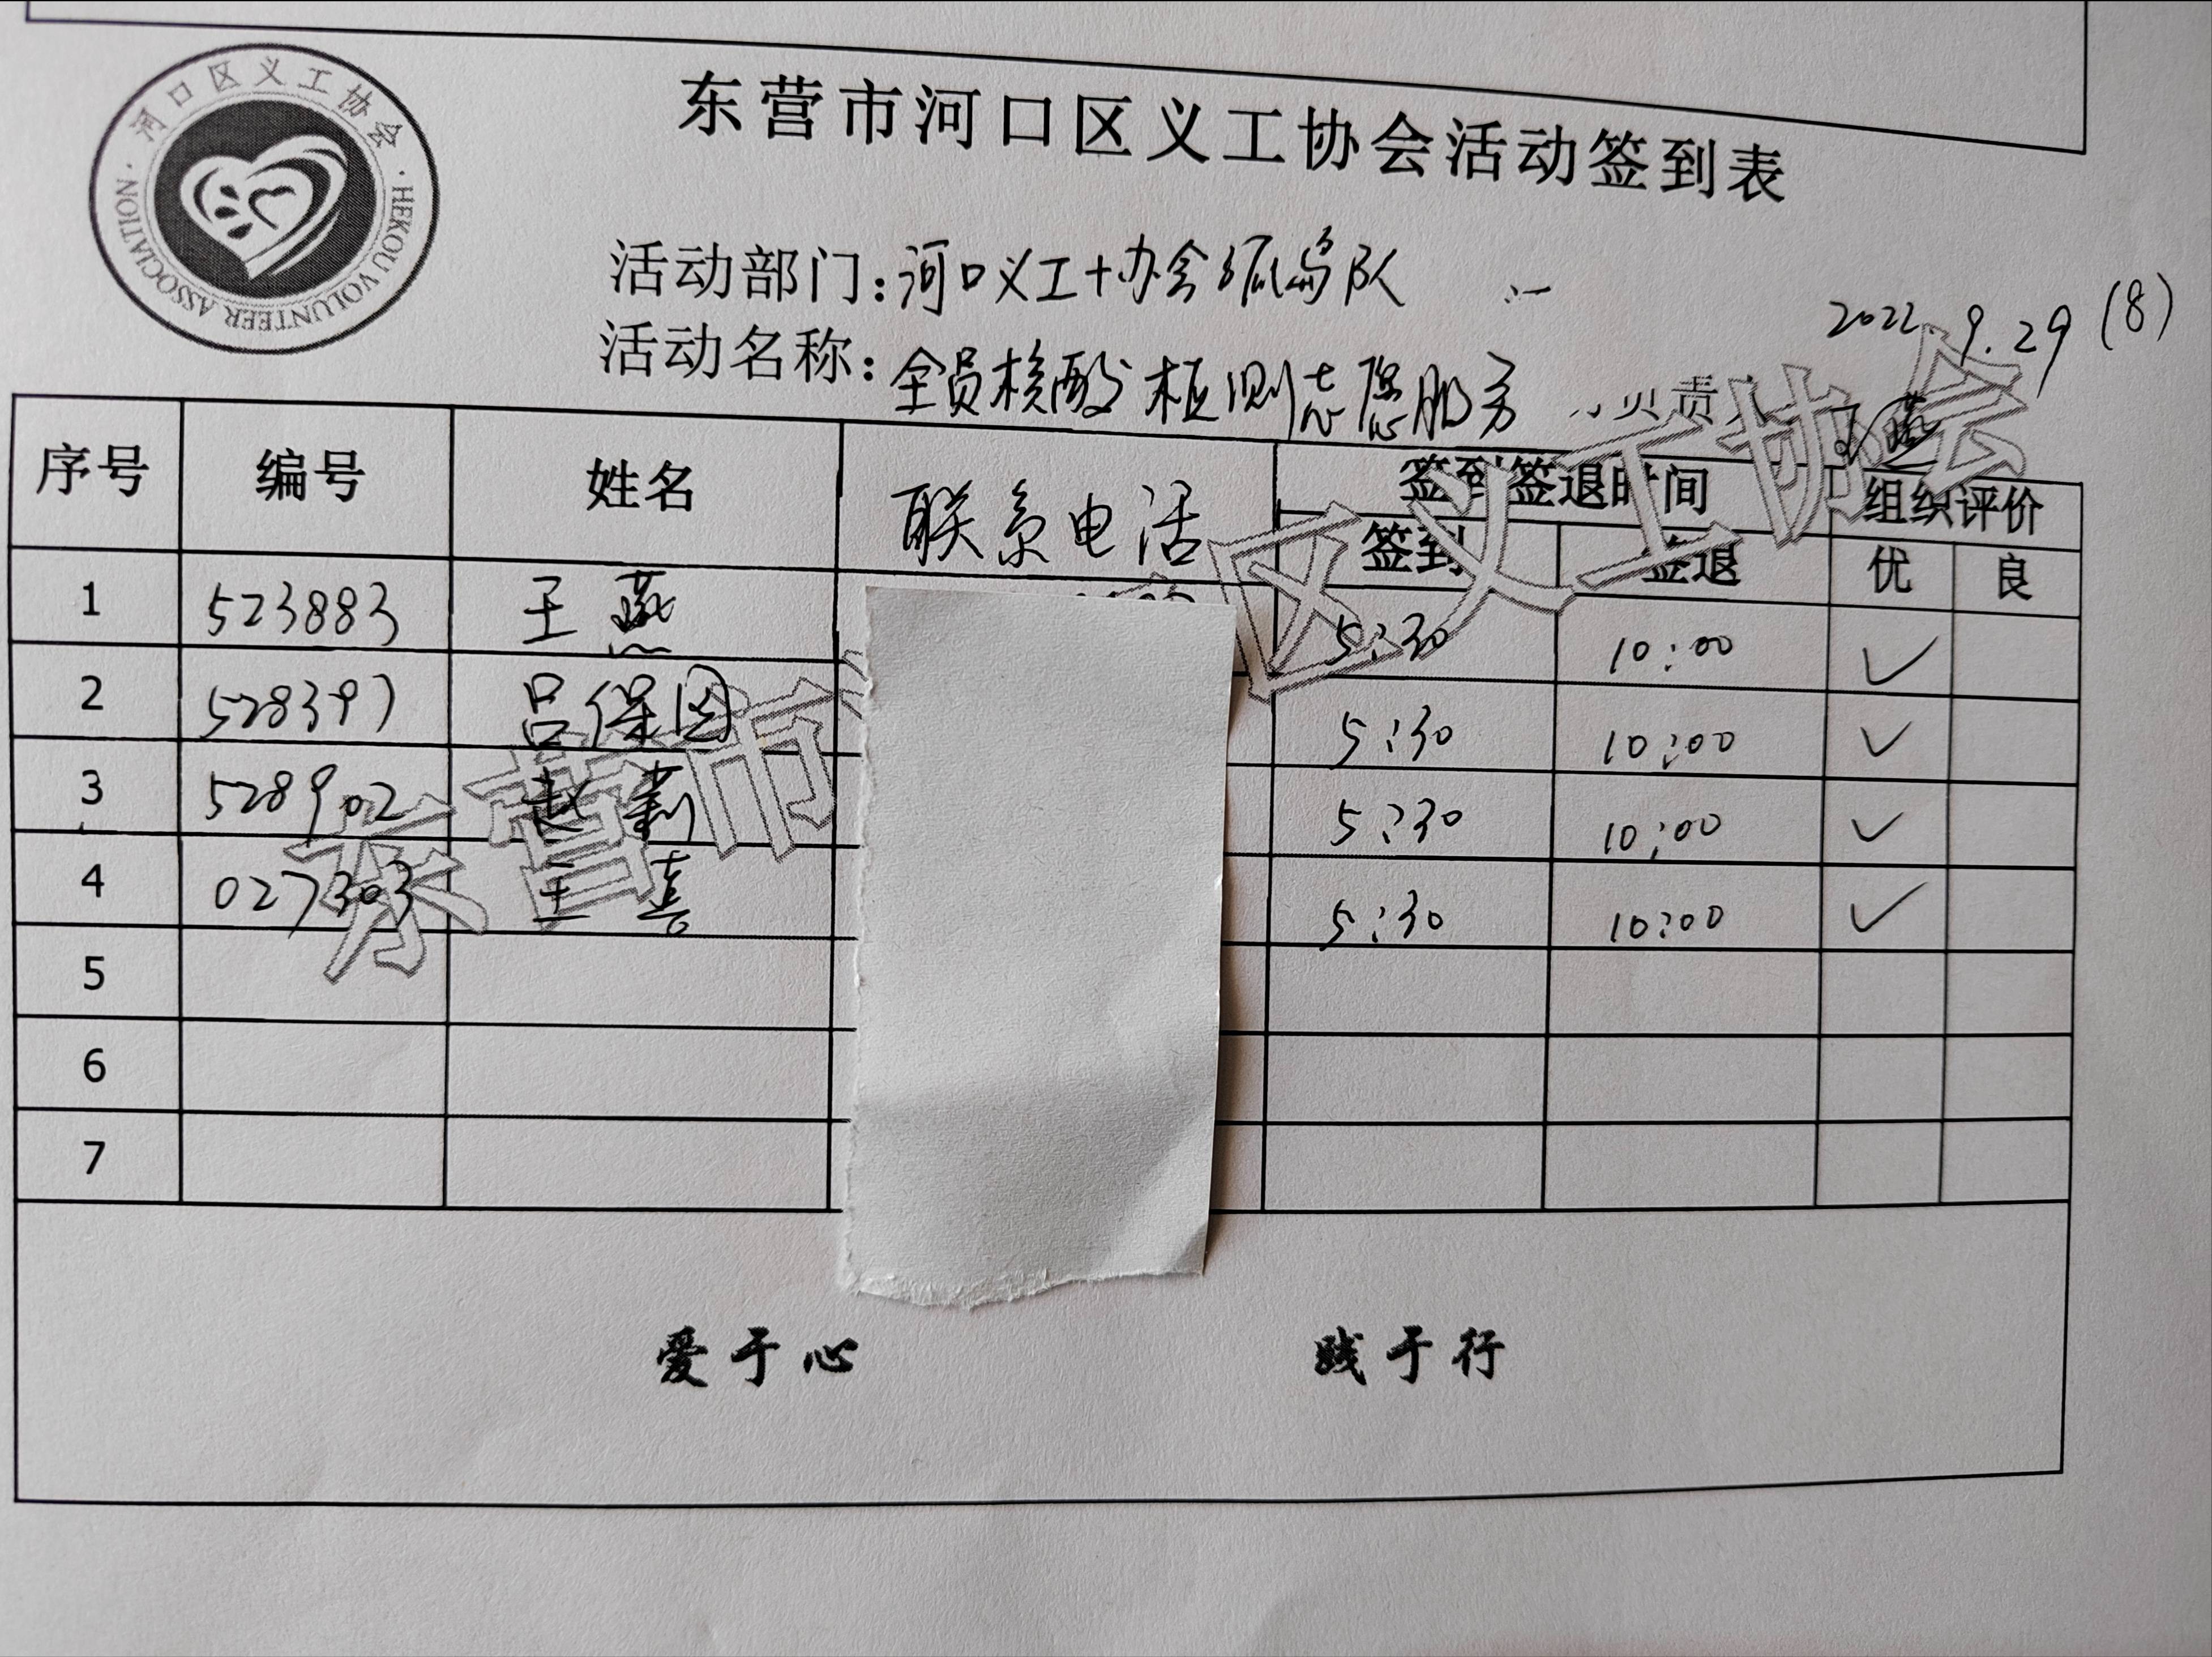 河口区义工协会
HEKOU VOLUNTEER ASSOCIATION
东营市河口区义工协会活动签到表
活动部门:河口义工协会孤岛队
2022.9.29(8)
活动名称:全员核酸检测志愿服务 负责
序号 编号 姓名 联系电话 签到签退时间 组织评价
签到 签退 优 良
1 523883 王燕 5:30 10:00 ✓
2 528397 吕保国 5:30 10:00 ✓
3 528902 赵莉 5:30 10:00 ✓
4 027303 王喜 5:30 10:00 ✓
5
6
7
东营市 区义工协会
爱于心 践于行